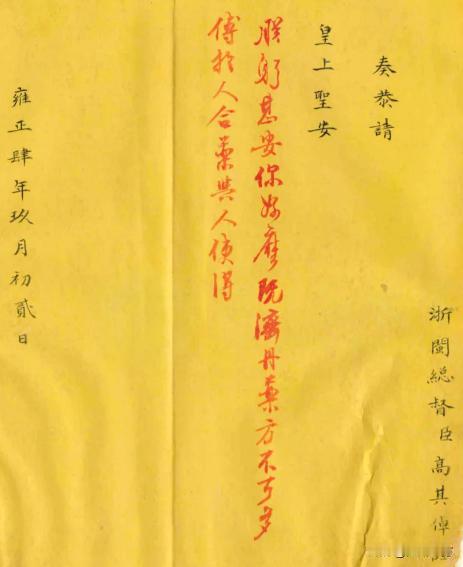 浙閩總督臣高其倬謹
奏恭請
皇上聖安
朕躬甚安你好麽既濟丹藥方不可多
傳於人合藥與人使得
雍正肆年玖月初貳日